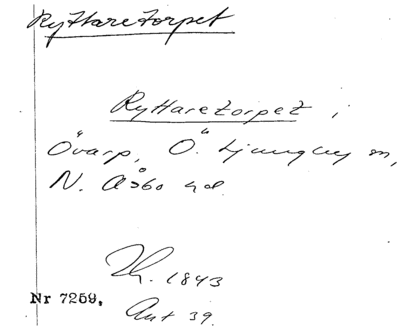 Ryttaretorpet
Ryttaretorpet i
Övarp, Ö. Ljungby sn,
N. Åsbo hd.
Th. 1843
Nr 7259.
Ant 39.